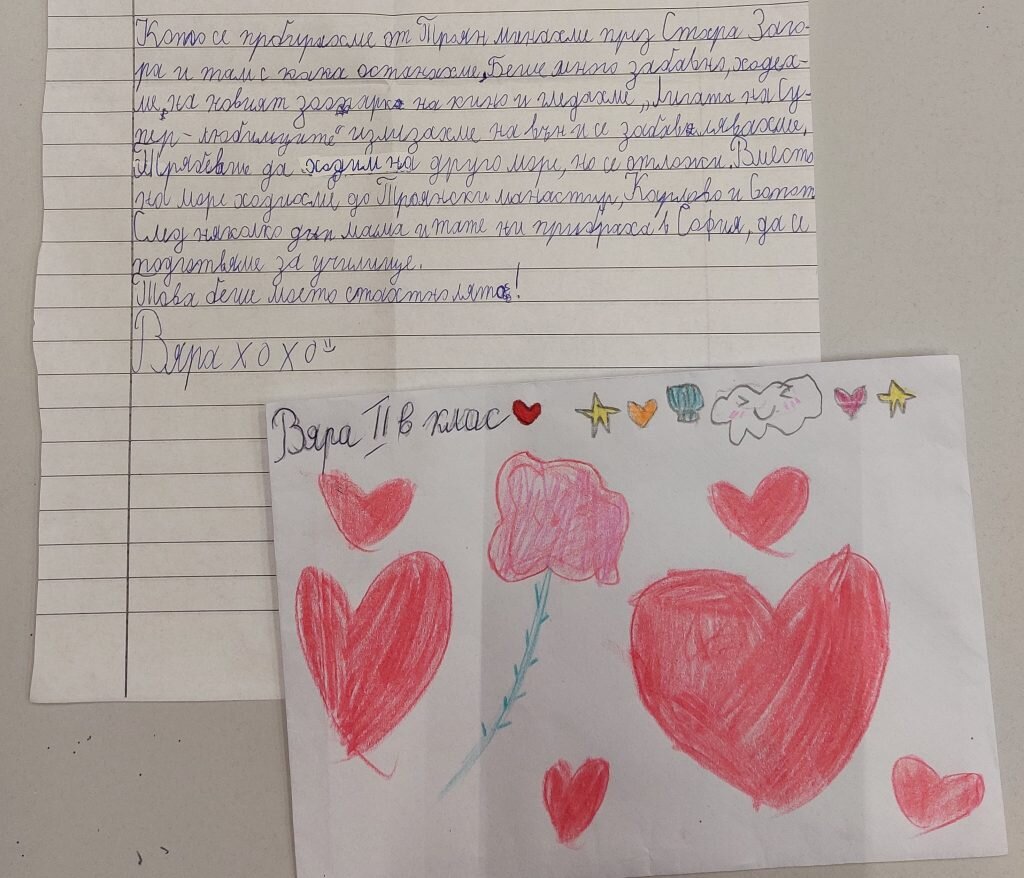 Когато се прибирахме от Троян минахме през Стара Заго-
ра и там с кака останахме. Беше много забавно, ходех-
ме, на новият зоопарк на кино и гледахме „Лигата на Су-
пер-любимците“ излизахме на вън и се забавлявахме.
Трябваше да ходим на друго море, но се отложи. Вместо
на море ходихме, до Троянски манастир, Карлово и Сопот.
След няколко дни мама и тате ни прибраха в София, да се
подготвяме за училище.
Това беше моето страхотно лято!
Вяра XOXO
Вяра II в клас